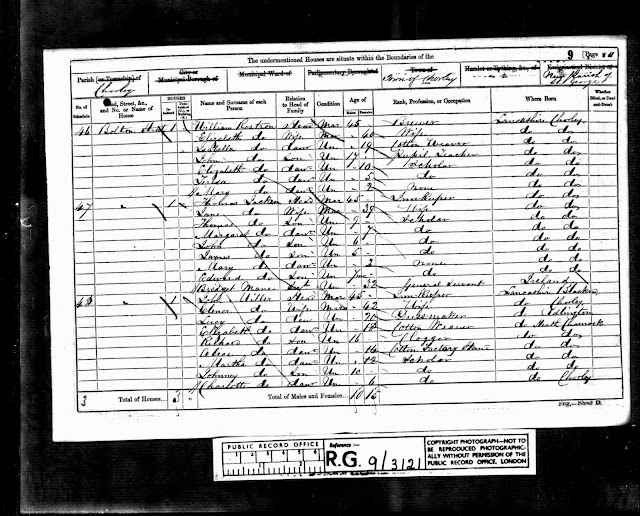 9 Page 24
The undermentioned Houses are situate within the Boundaries of the
Parish [or Township] of City or Municipal Borough of Municipal Ward of Parliamentary Borough of Town of Hamlet or Tything, &c., of Ecclesiastical District of
Chorley Town of Chorley New Parish of St Georges
No. of Schedule Road, Street, &c., and No. or Name of House HOUSES Name and Surname of each Person Relation to Head of Family Condition Age of Rank, Profession, or Occupation Where Born Whether Blind, or Deaf-and-Dumb
Males Females
46 Bolton Street 1 William Rostron Head Mar 45 Brewer Lancashire Chorley
Elizabeth do Wife Mar 40 Wife do do
do daur Un 19 Cotton Weaver do do
John do Son Un 17 Pupil Teacher do do
Elizabeth do daur Un 10 Scholar do do
do daur Un 5 do do do
Mary do daur Un 2 None do do
47 " 1 Thomas Jackson Head Mar 45 Innkeeper do do
Jane do Wife Mar 39 Wife do do
Thomas do Son Un 9 Scholar do do
Margaret do daur Un 7 do do do
John do Son Un 6 do do do
James do Son Un 5 do do do
Mary do daur Un 2 none do do
Edward do Son Un 7 do do do
Bridget Un 32 General Servant Ireland
48 " 1 John Head Mar 45 Innkeeper Lancashire
do Wife Mar 42 Wife do Chorley
Lucy do daur Un 20 Dressmaker do Adlington
Elizabeth do daur Un 18 Cotton Weaver do Heath Charnock
Richard do Son Un 16 Clogger do do
Alice do daur Un 14 Cotton Factory do do
Martha do daur Un 12 Scholar do do
Johnney do Son Un 10 do do do
Charlotte do daur Un 6 do do Chorley
3 Total of Houses... 3 Total of Males and Females... 10 15
Eng.—Sheet D.
PUBLIC RECORD OFFICE
1 2 3 4 5 6
Reference :-
R.G. 9/3121
COPYRIGHT PHOTOGRAPH—NOT TO
BE REPRODUCED PHOTOGRAPHIC-
ALLY WITHOUT PERMISSION OF THE
PUBLIC RECORD OFFICE, LONDON